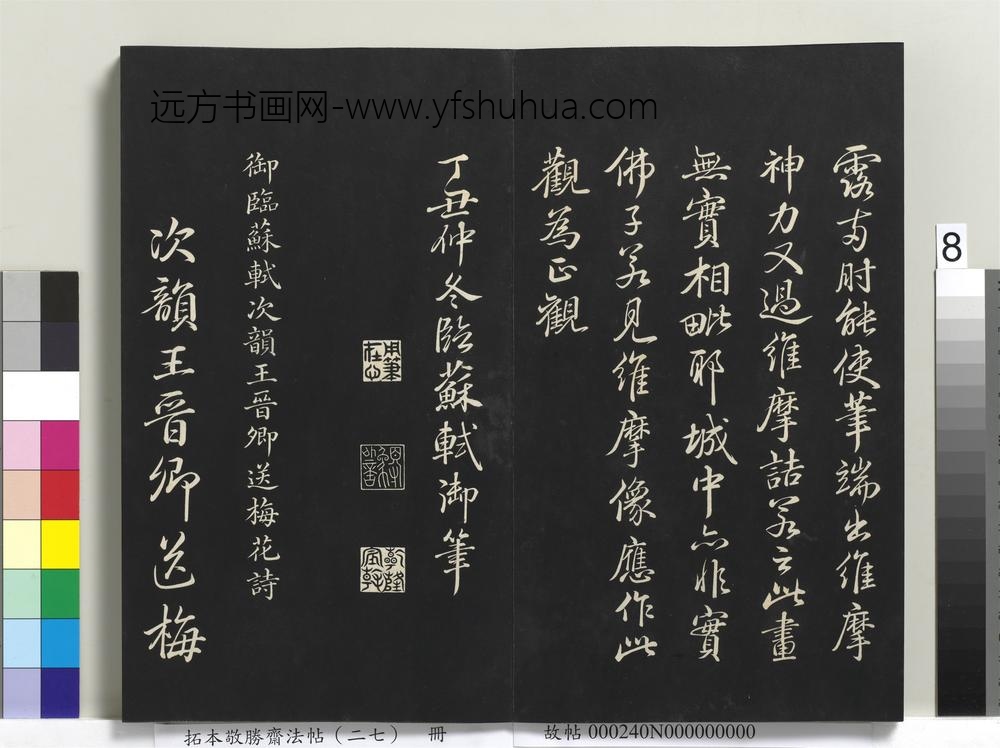 远方书画网-www.yfshuhua.com
露布肘能使筆端出維摩
神力又過維摩詰若云此畫
無實相毗耶城中亦非實
佛子若見維摩像應作此
觀為正觀
丁丑仲冬臨蘇軾御筆
用筆在心
乾隆宸翰
御臨蘇軾次韻王晉卿送梅花詩
次韻王晉卿送梅
8
拓本敬勝齋法帖（二七） 冊
故帖 000240N000000000